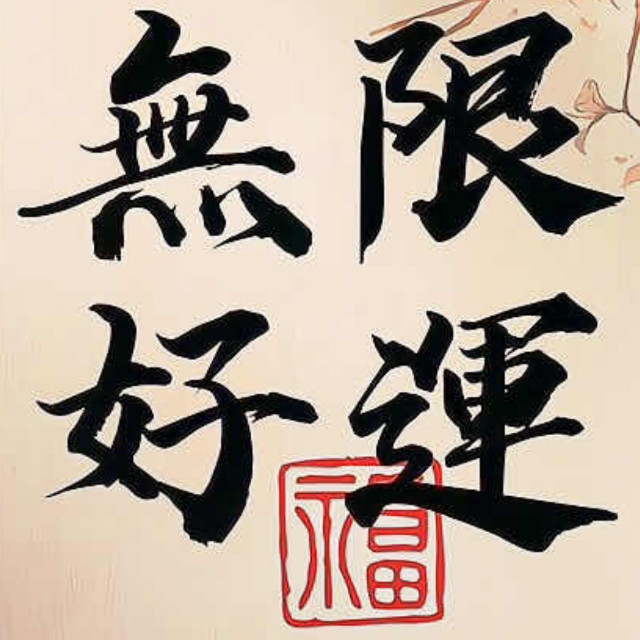 無限
好運
福